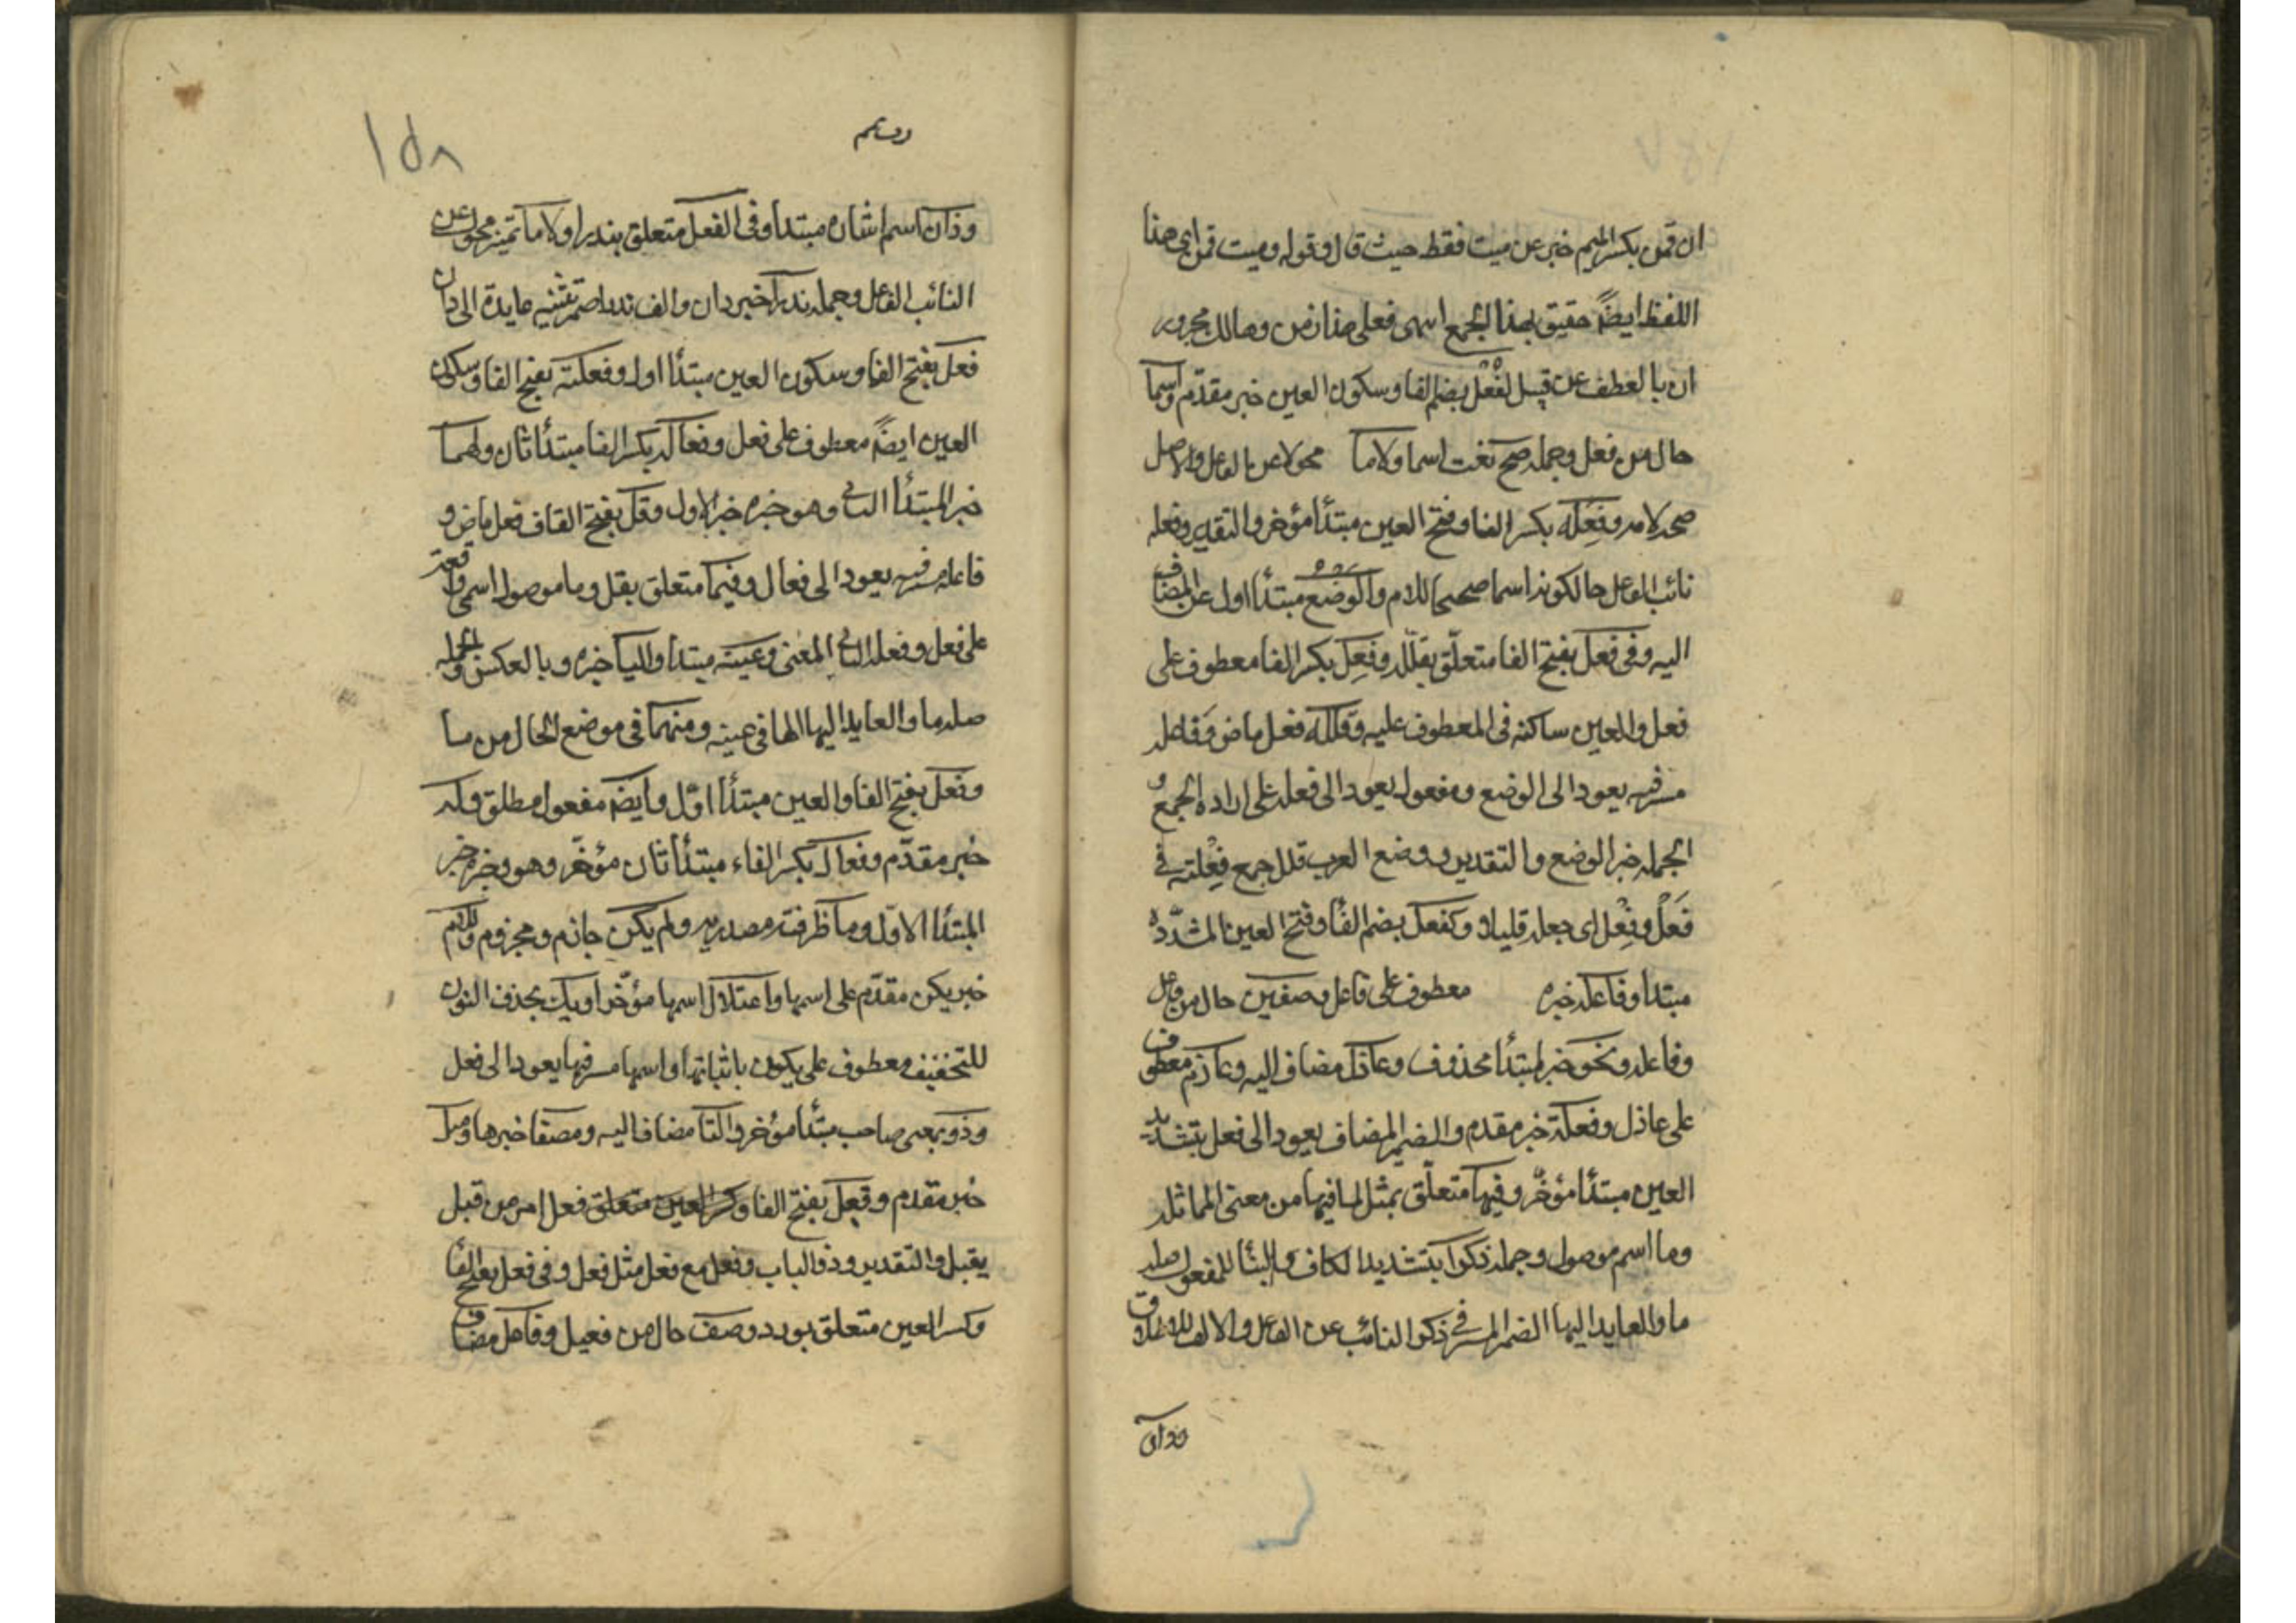 ان قمن بكسر الميم خبر عن ميت فقط حيث قال وقوله وميت قمن اى هذا
اللفظ ايضًا حقيق بهذا الجمع اسمى فعلى هذا زمن وهالك مجرور
ان بالعطف عن قبل لفُعْل بضم الفا وسكون العين خبر مقدّم واسما
حال من فعل وجملة صح نعت اسما ولاما محولا عن الفاعل والاصل
صح لامه وفِعَلَه بكسر الفا وفتح العين مبتدأ مؤخر والتقدير وفعله
نائب الفاعل حالكونه اسما صحيح اللام والوضع مبتدأ اول عن المضاف
اليه وفى فعل بفتح الفا متعلّق بقلّل وفِعِل بكسر الفا معطوف على
فعل والعين ساكنه فى المعطوف عليه وقلله فعل ماض وفاعله
مسر فيه يعود الى الوضع ومفعوله يعود الى فعله على اراده الجمع و
الجمله خبر الوضع والتقدير ووضع العرب قلل جمع فِعْلته فى
فَعْل وفِعْل اى جعله قليلا وكفعل بضم الفا وفتح العين المشدّده
مبتدا وفاعل خبره معطوف على فاعل وصفين حال من فاعل
وفاعله ونحو خبر لمبتدأ محذوف وعاذل مضاف اليه وعاذله معطوف
على عاذل وفعلة خبر مقدم والضمير المضاف يعود الى فعل بتشديد
العين مبتدأ مؤخّر وفيها متعلّق بمثل لما فيها من معنى المماثله
وما اسم موصول وجملة ذكرا بتشديد الكاف والبنا للمفعول صلة
ما والعايد اليها الضمير المسر فى ذكرا النائب عن الفاعل والالف للاطلاق
وذان
١٥٨
وذان اسم اشاره مبتدأ وفى الفعل متعلق بندرا ولاما تميز محول عن
النائب الفاعل وجملة ندرا خبر ذان والف ندرا ضمير تثنيه عايدة الى ذان
فعل بفتح الفا وسكون العين مبتدأ اول وفعلة بفتح الفا وسكون
العين ايضًا معطوف على فعل وفعال بكسر الفا مبتدأ ثان ولهما
خبر المبتدأ الثانى وهو خبره خبر الاول وقل بفتح القاف فعل ماض و
فاعله مسر فيه يعود الى فعال وفيما متعلق بقل وما موصول اسمى واقعة
على فعل وفعلة الثانى المعنى وعينه مبتدا واليا خبره وبالعكس والجمله
صلة ما والعايد اليها الها فى عينه ومنهما فى موضع الحال من ما
وفعل بفتح الفا والعين مبتدأ اوّل وايضًا مفعول مطلق وله
خبر مقدّم وفعال بكسر الفاء مبتدأ ثان مؤخّر وهو وخبره خبر
المبتدأ الاوّل وما ظرفية مصدريه ولم يكن جازم ومجزوم وللام
خبر يكن مقدّم على اسمها واعتلال اسمها مؤخّرا ويك بحذف النون
للتخفيف معطوف على يكون باثباتها واسمها مسر فيها يعود الى فعل
وذو بمعنى صاحب مبتدأ مؤخر والتا مضاف اليه ومضعفا خبرها ومثل
خبر مقدم وفِعل بفتح الفا فعل امر من قبل
يقبل والتقدير وذو الباب وفعل مع فعل مثل فعل وفى فعل بفتح الفا
وكسر العين متعلق بورد وصف حال من فعيل وفاعل مضاف